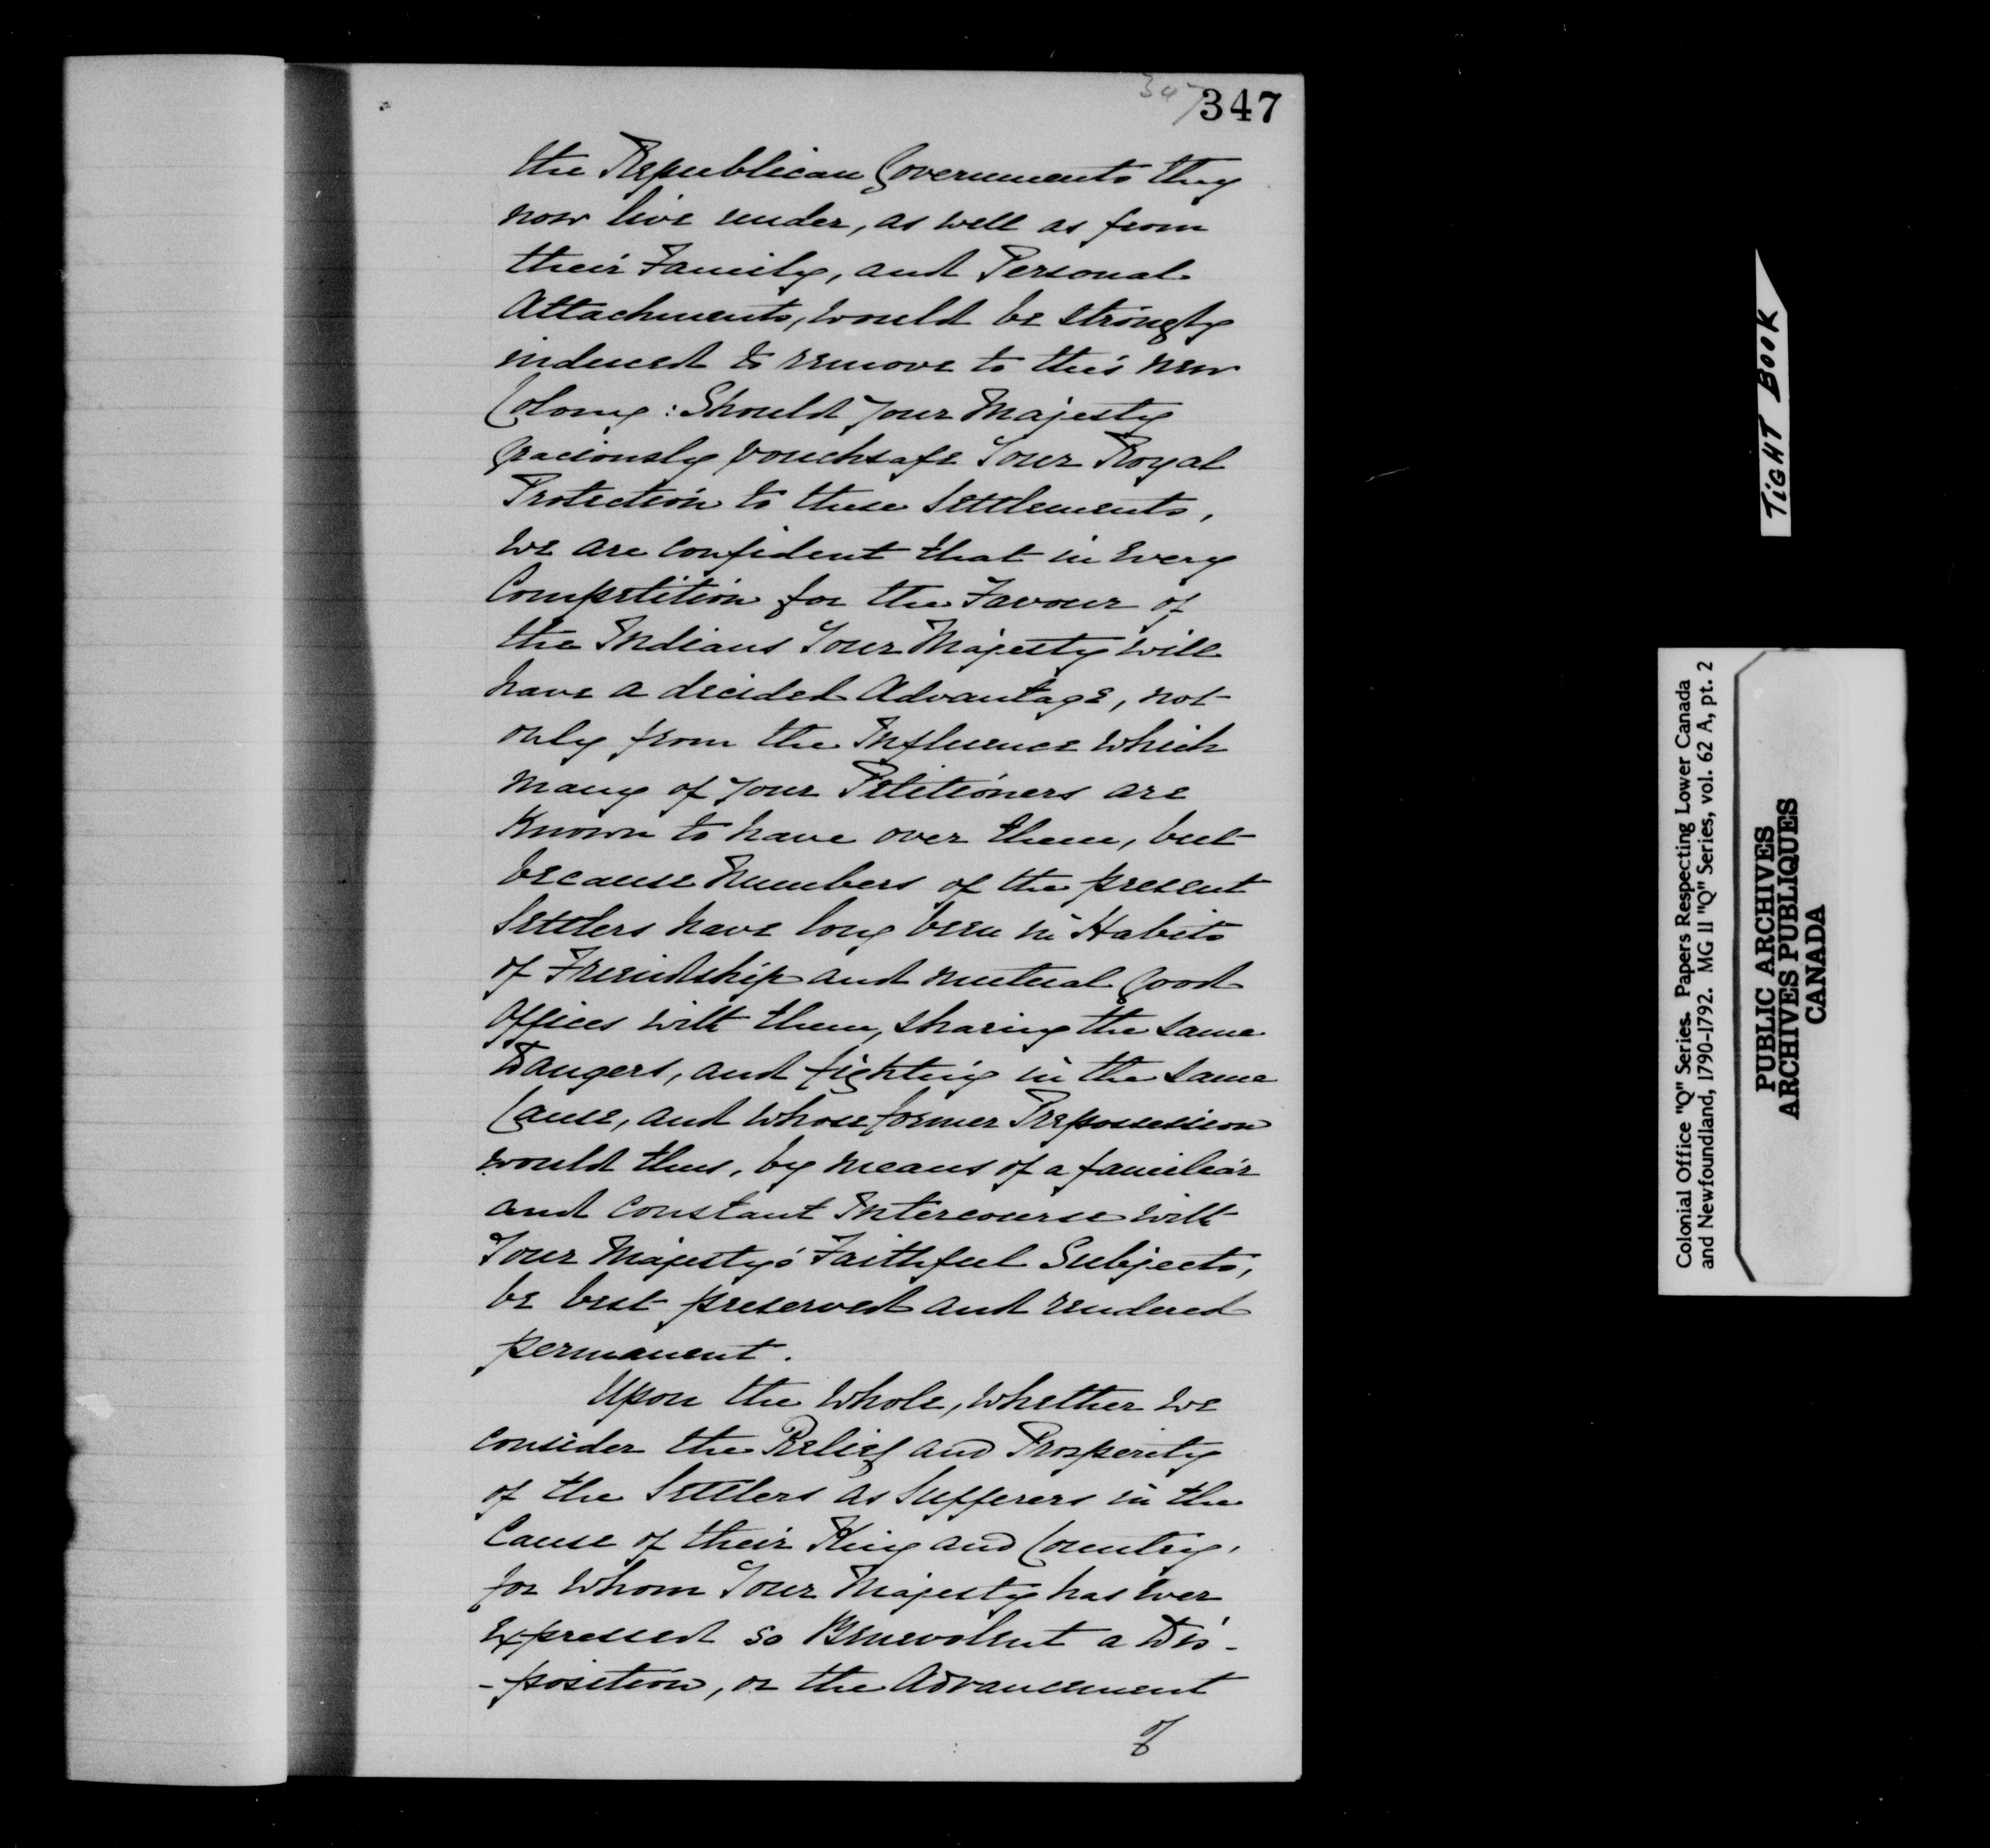 347
347
the Republican Governments they
now live under, as well as from
their Family, and Personal
Attachments, would be strongly
induced to remove to this new
Colony: Should Your Majesty
graciously vouchsafe Your Royal
Protection to these Settlements,
we are confident that in every
Competition for the Favour of
the Indians Your Majesty will
have a decided Advantage, not
only from the Influence which
many of your Petitioners are
Known to have over them, but
because Numbers of the present
Settlers have long been in Habits
of Friendship and mutual good
Offices with them, sharing the same
Dangers, and fighting in the same
Cause, and whose former Prepossession
would thus, by means of a familiar
and constant Intercourse with
Your Majesty's Faithful Subjects,
be best preserved and rendered
permanent.
Upon the whole, whether we
consider the Relief and Prosperity
of the Settlers as Sufferers in the
Cause of their King and Country,
for whom Your Majesty has ever
expressed so Benevolent a Dis-
-position, or the Advancement
of
TIGHT BOOK
Colonial Office "Q" Series. Papers Respecting Lower Canada
and Newfoundland, 1790-1792. MG 11 "Q" Series, vol. 62 A, pt. 2
PUBLIC ARCHIVES
ARCHIVES PUBLIQUES
CANADA